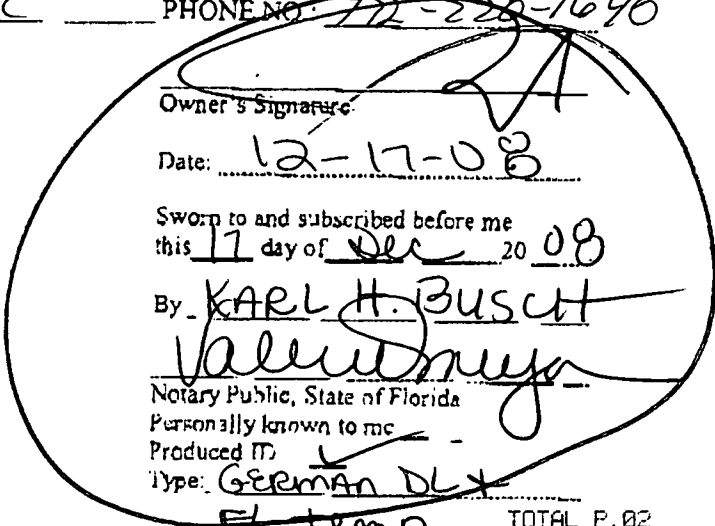 C PHONE NO.: 772-220-1690
Owner's Signature
Date: 12-17-08
Sworn to and subscribed before me
this 17 day of Dec 20 08
By KARL H. BUSCH
Notary Public, State of Florida
Personally known to me
Produced ID ✓
Type: GERMAN DL +
TOTAL P.02